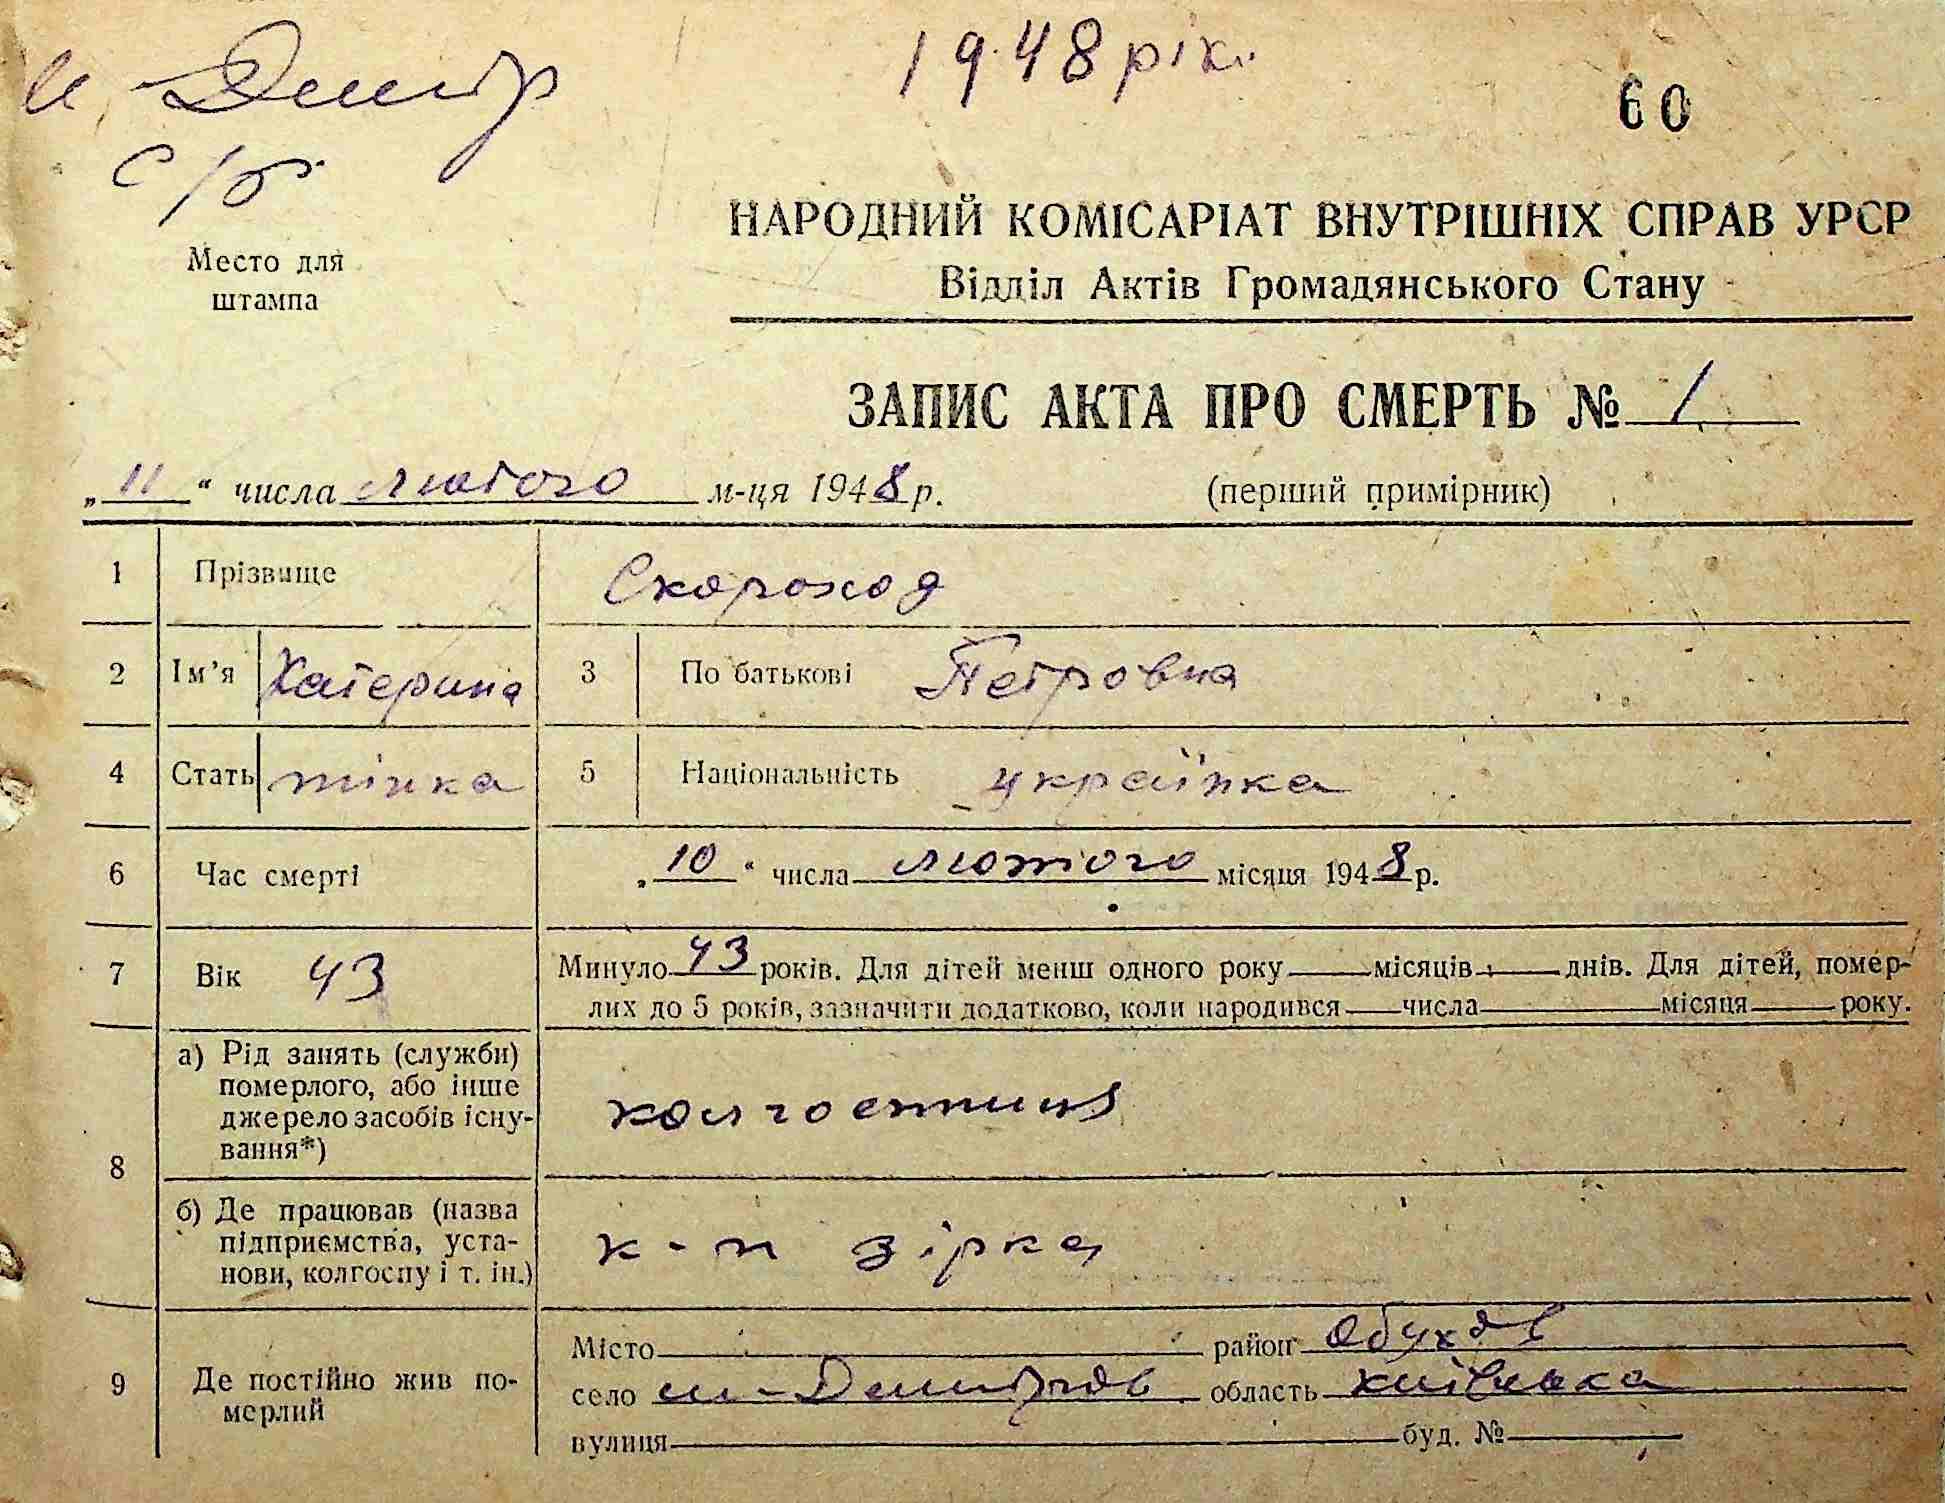 19.48 рік.
60
с/б
Место для
штампа
НАРОДНИЙ КОМІСАРІАТ ВНУТРІШНІХ СПРАВ УРСР
Відділ Актів Громадянського Стану
ЗАПИС АКТА ПРО СМЕРТЬ № 1
„11“ числа лютого м-ця 1948 р. (перший примірник)
1 Прізвище Скороход
2 Ім'я Катерина 3 По батькові Петровна
4 Стать жінка 5 Національність українка
6 Час смерті „10“ числа лютого місяця 1948 р.
7 Вік 43 Минуло 43 років. Для дітей менш одного року місяців днів. Для дітей, помер-
лих до 5 років, зазначити додатково, коли народився числа місяця року.
8 а) Рід занять (служби)
померлого, або інше
джерело засобів існу-
вання*)
колгоспниця
б) Де працював (назва
підприємства, уста-
нови, колгоспу і т. ін.)
к-п зірка
9 Де постійно жив по-
мерлий
Місто район Обухів
село область київська
вулиця буд. №